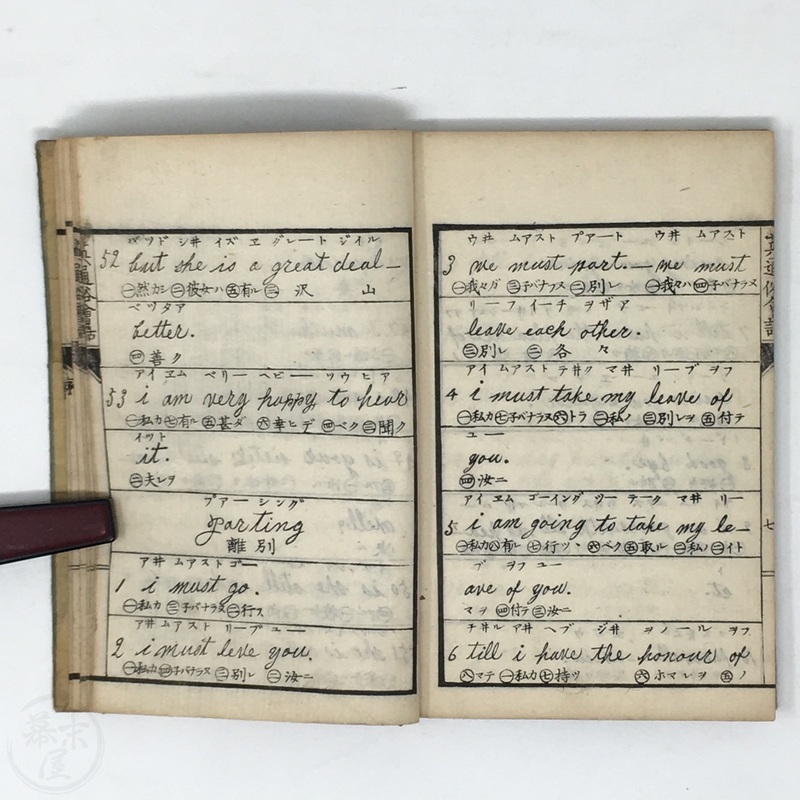 バツド シ井 イズ ヱ グレート ジイル
52 but she is a great deal—
㊀然カシ ㊁彼女ハ ㊄有ル ㊂沢山
ベツタア
better.
㊃善ク
アイ ヱム ベリー ヘピー ツウ ヒア
53 i am very happy to hear
㊀私カ ㊆有ル ㊄甚ダ ㊅幸ヒデ ㊃ベク ㊂聞ク
イット
it.
㊁夫レヲ
プアーシング
Parting
離別
ア井 ムアスト ゴー
1 i must go.
㊀私カ ㊂子バナラヌ ㊁行ス
ア井 ムアスト リーブ ユー
2 i must leve you.
㊀私カ ㊃子バナラヌ ㊂別レ ㊁汝ニ
ウ井 ムアスト プアート ウ井 ムアスト
3 we must part.—we must
㊀我々ガ ㊂子バナラヌ ㊁別レ ㊀我々ハ ㊃子バナラヌ
リーフ イーチ ヲザア
leave each other.
㊂別レ ㊁各々
アイ ムアスト テ井ク マ井 リーブ ヲフ
4 i must take my leave of
㊀私カ ㊆子バナラヌ ㊅トラ ㊁私ノ ㊂別レヲ ㊄付テ
ユー
you.
㊃汝ニ
アイ ヱム ゴーイング ツー テーク マ井 リー
5 i am going to take my le—
㊀私カ ㊇有ル ㊆行ツヽ ㊅ベク ㊄取ル ㊁私ノ ㊁イト
ブ ヲフ ユー
ave of you.
マヲ ㊃付テ ㊂汝ニ
チ井ル ア井 ヘブ ジ井 ヲノール ヲフ
6 till i have the honour of
㊇マテ ㊀私カ ㊆持ツ ㊅ホマレヲ ㊄ノ
七
序
幕末屋